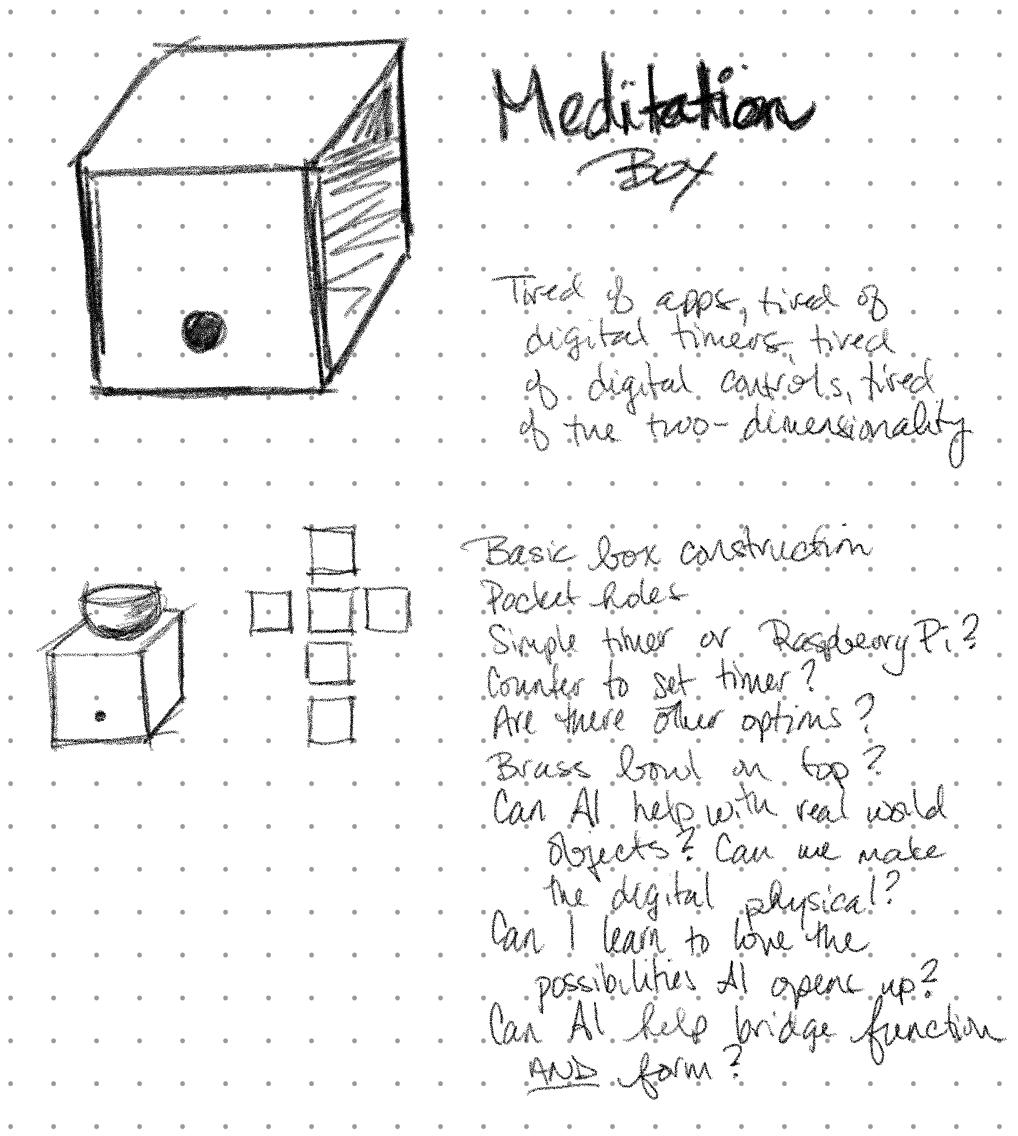 Meditation
Box
Tired of apps, tired of
digital timers, tired
of digital controls, tired
of the two-dimensionality
Basic box construction
Pocket holes
Simple timer or Raspberry Pi?
Counter to set timer?
Are there other options?
Brass bowl on top?
Can AI help with real world
objects? Can we make
the digital physical?
Can I learn to love the
possibilities AI opens up?
Can AI help bridge function
AND form?